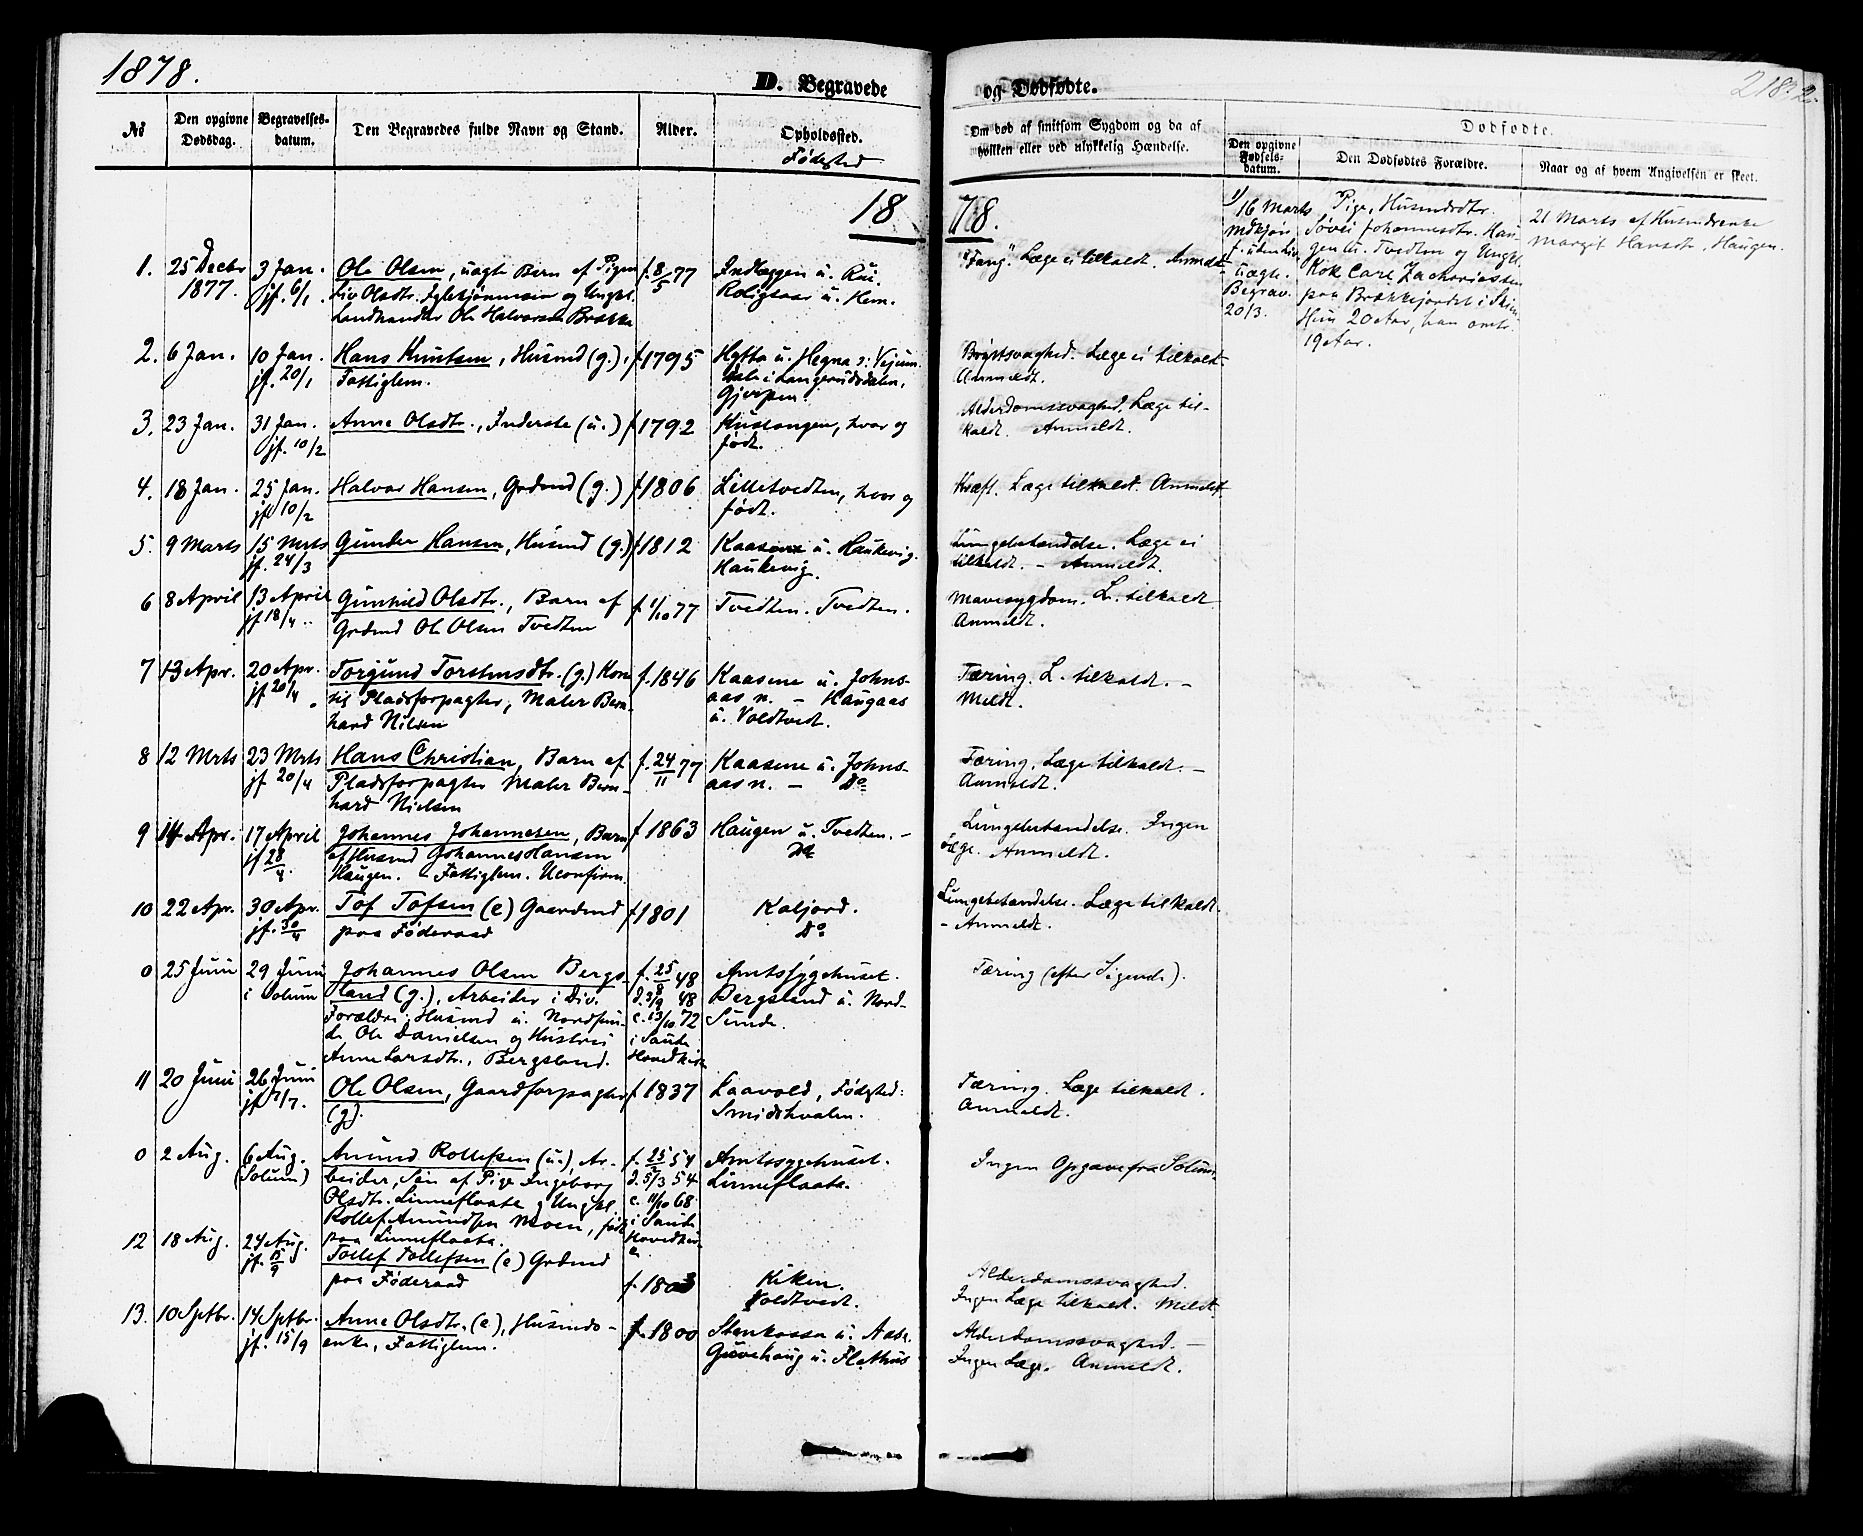 1878.
D. Begravede
og Dødfødte.
218.
No
Den opgivne Dødsdag.
Begravelses-datum.
Den Begravedes fulde Navn og Stand.
Alder.
Opholdssted.
Fødested
Om død af smitsom Sygdom og da af hvilken eller ved ulykkelig Hændelse.
Dødfødte.
Den opgivne Fødsels-datum.
Den Dødfødtes Forældre.
Naar og af hvem Angivelsen er skeet.
18 78.
1. 25 Decbr 1877. 3 Jan. jf. 6/1
Ole Olsen, uægte Barn af Pigen
Liv Olsdtr. og Ungkl.
Landhandler Ole Halvorsen Brække
f. 8/5 77
Indlæggen u. Rui.
Roligaas u. Hem.
"Fang". Læge ei tilkaldt. Anmeldt
2. 6 Jan. 10 Jan. jf. 20/1
Hans Knutsen, Husmd (g.),
Fattiglem.
f 1795
Hytta u. Hegna
dale i Langerudsdalen,
Gjerpen.
Brystsvaghed. Læge ei tilkaldt.
Anmeldt.
3. 23 Jan. 31 Jan. jf. 10/2
Anne Olsdtr., Inderste (u.)
f 1792
hvor og
født.
Alderdomssvaghed. Læge til-
kaldt. Anmeldt.
4. 18 Jan. 25 Jan. jf 10/2
Halvor Hansen, Grdmd (g.)
f 1806
Lilletvedten, hvor og
født.
Kræft. Læge tilkaldt. Anmeldt
5. 9 Marts 15 Mrts jf. 24/3
Gunder Hansen, Husmd (g.)
f 1812
Kaasene u. Haukevig.
Haukevig.
Lungebetændelse. Læge ei
tilkaldt. – Anmeldt.
6 8 April 13 April jf 18/4
Gunhild Olsdtr., Barn af
Grdmd Ole Olsen Tvedten
f. 1/10 77
Tvedten. Tvedten.
Mavesygdom. L. tilkaldt
Anmeldt.
7 13 Apr. 20 Apr. jf 20/4
Torgund Torstensdtr. (g.) Kone
til Pladsforpagter, Maler Bern-
hard Nilsen
f. 1846
Kaasene u. Johns-
aas n. – Haugaas
u. Voldtvedt.
Tæring. L. tilkaldt. –
Meldt.
8 12 Mrts 23 Mrts jf 20/4
Hans Christian, Barn af
Pladsforpagter Maler Bern-
hard Nielsen
f. 24/11 77
Kaasene u. Johns-
aas n. – Do
Tæring. Læge tilkaldt. –
Anmeldt.
9 14 Apr. 17 April jf 28/4
Johannes Johannesen, Barn
af Husmd Johannes Hansen
Haugen. – Fattiglem. Uconfirm.
f 1863
Haugen u. Tvedten. –
Do
Lungebetændelse. Ingen
Læge. Anmeldt.
10 22 Apr. 30 Apr. jf. 30/4
Tof Tofsen (e) Gaardmd
paa Føderaad
f 1801
Kaljord.
Do
Lungebetændelse. Læge tilkaldt.
– Anmeldt.
0 25 Juni 29 Juni i Solum
Johannes Olsen Bergs-
land (g.), Arbeider i Div.
Forældre: Husmd u. Nordsun-
de Ole Danielsen og Hustru
Anne Larsdtr., Bergsland.
f. 25/8 48
d. 3/9 48
c. 13/10 72
i Saude
Hovedkirke
Amtssygehuset.
Bergsland u. Nord-
Sunde.
Tæring (efter Sigende).
11 20 Juni 26 Juni jf 7/7.
Ole Olsen, Gaardforpagter
(g)
f 1837
Laavold, Fødested:
Smidshvalen.
Tæring. Læge tilkaldt.
Anmeldt.
0 2 Aug. 6 Aug. (Solum)
Amund Rollefsen (u.), Ar-
beider, Søn af Pige Ingeborg
Olsdtr. Linneflaata og Ungkl.
Rollef Amundsen Moen, født
paa Linneflaata.
f. 25/1 54
d. 5/3 54
c. 11/10 68
i Saude
Hovedkir-
ke
Amtssygehuset.
Linneflaata.
Ingen Opgave fra Solum.
12 18 Aug. 24 Aug. jf. 15/9
Tollef Tollefsen (e) Grdmd
paa Føderaad
f. 1803
Kiken.
Voldtvedt.
Alderdomssvaghed.
Ingen Læge tilkaldt. Meldt
13. 10 Septbr. 14 Septbr. jf. 15/9
Anne Olsdtr. (e), Husmds-
enke, Fattiglem.
f. 1800
Stenkassa u. Aase.
Guvehaug u. Flathus
Alderdomssvaghed. –
Ingen Læge. Anmeldt.
1) 16 Marts
Mdkjøn
f. udenfor
uægte.
Begrav.
20/3.
Pige, Husmdsdtr.
Søvei Johannesdtr. Hau-
gen u. Tvedten og Ungkl.
Kok Carl Zachariassen
paa Brækkejordet i Skien
Hun 20 Aar, han omtr.
19 Aar.
21 Marts af Husmdsenke
Margit Hansdtr. Haugen.